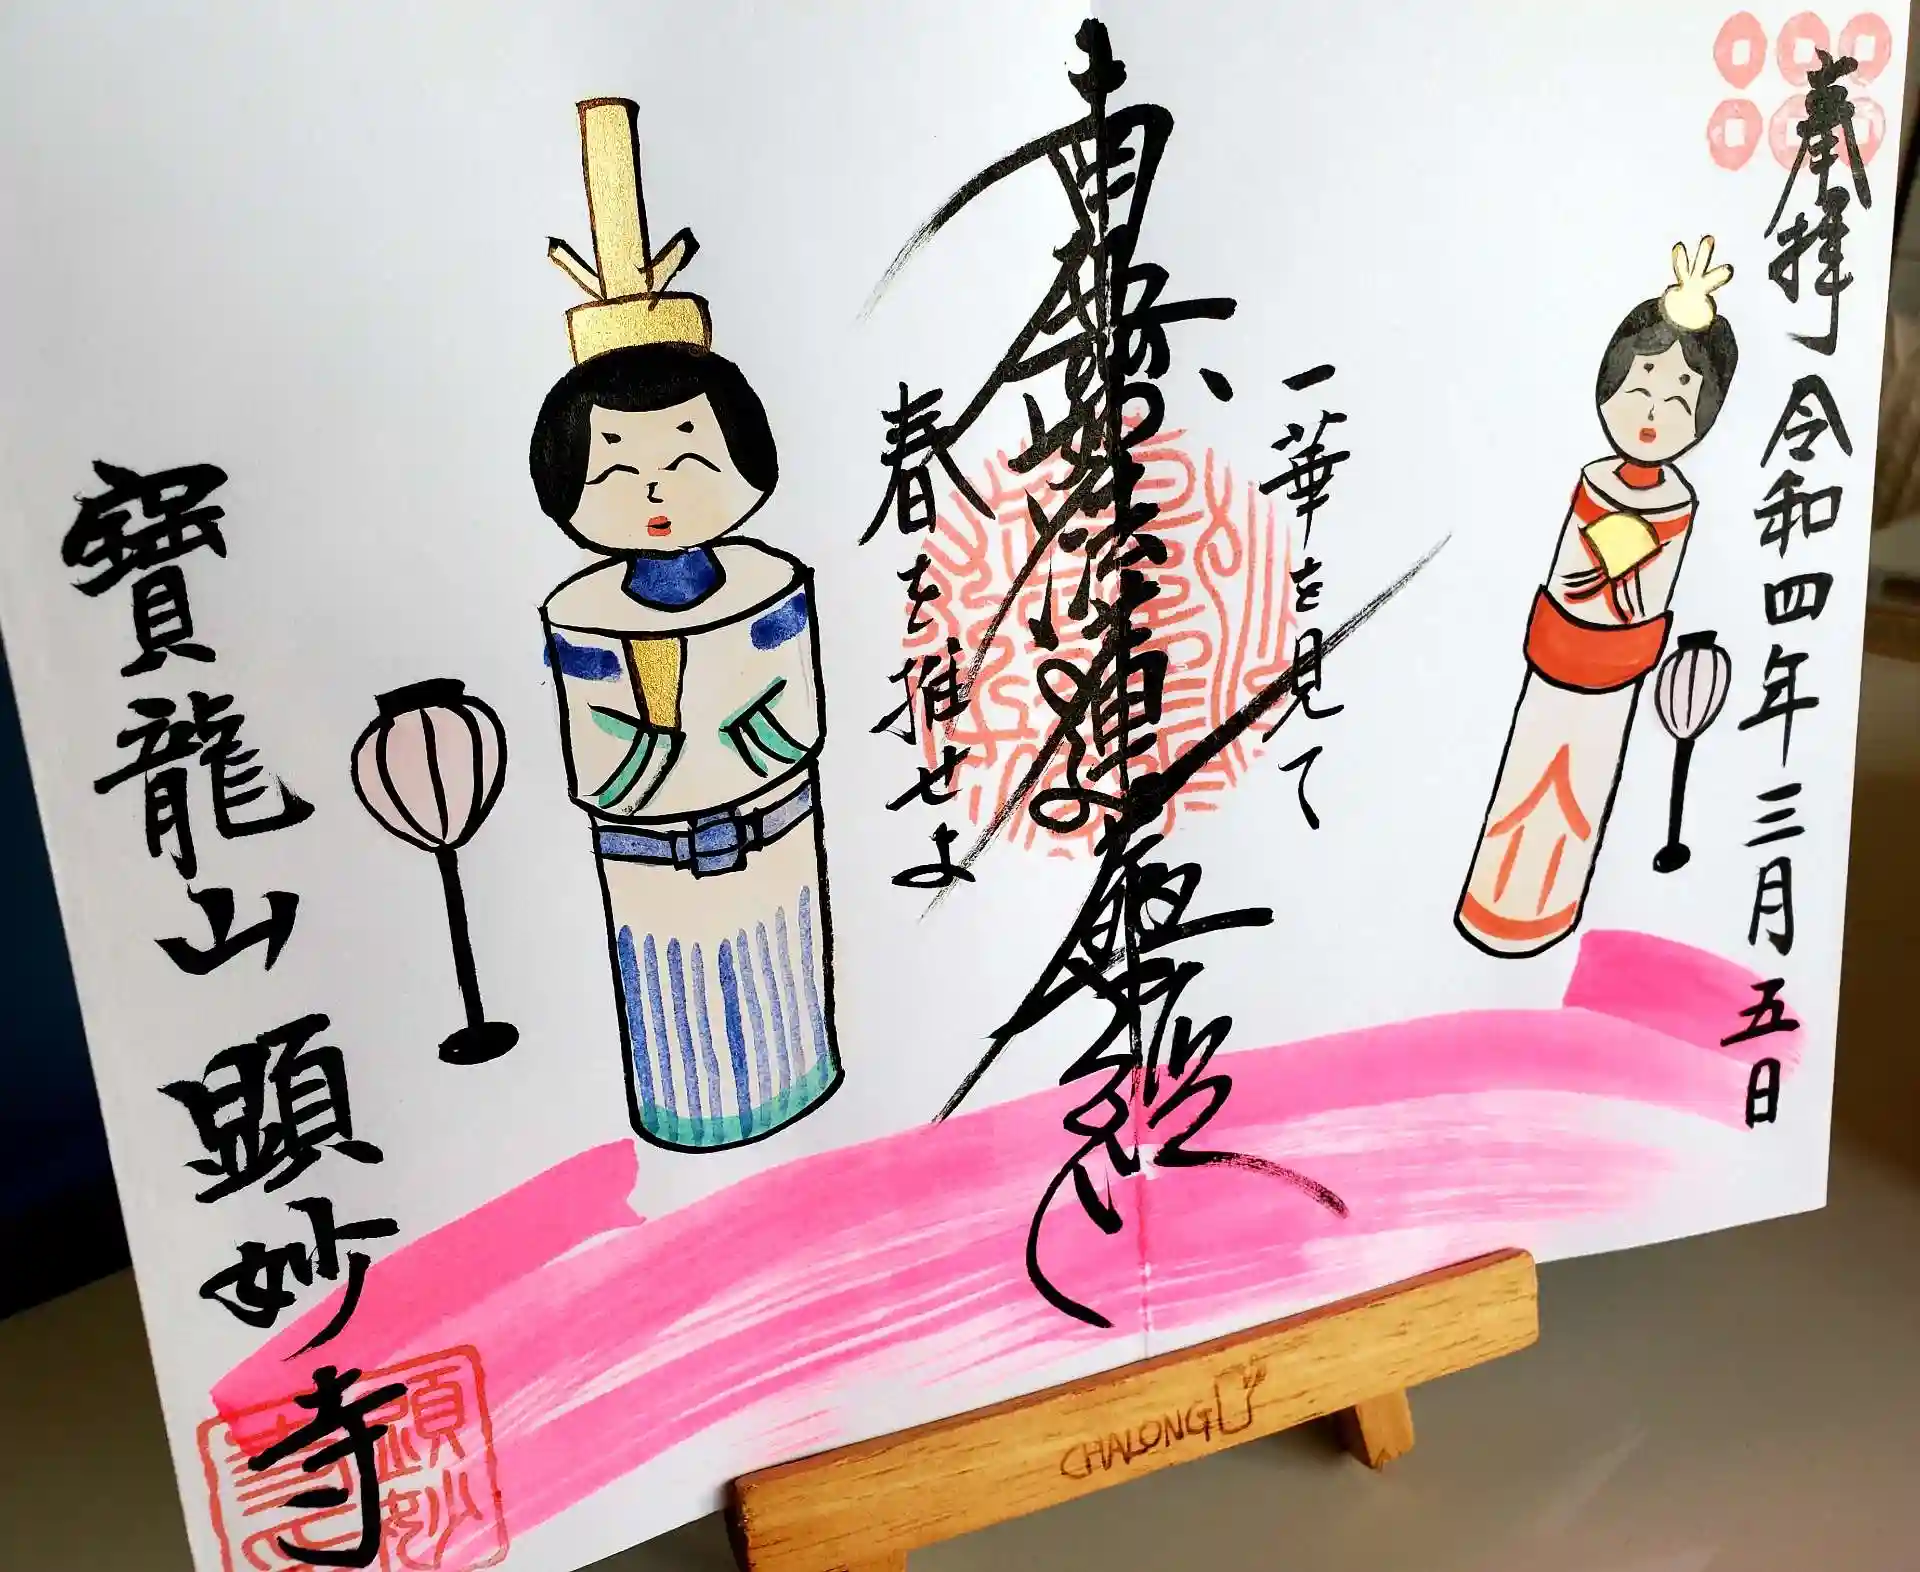 奉拝 令和四年三月五日
一華を見て
南無妙法蓮華経
春を推せよ
寶龍山 顕妙寺
CHALONG